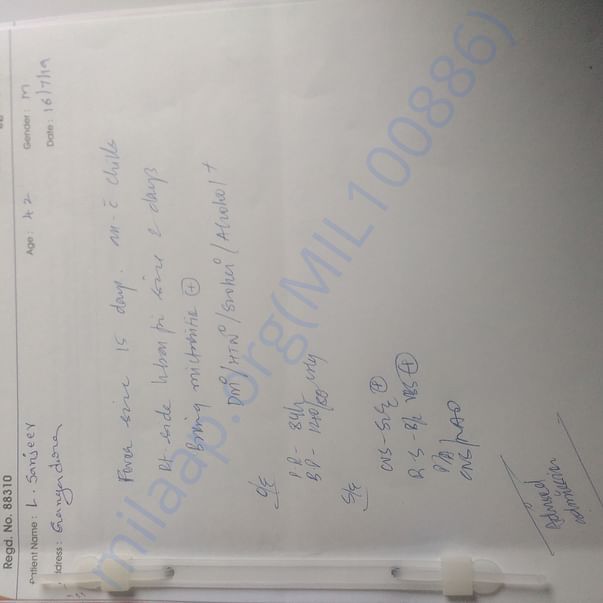 Regd. No. 88310
Patient Name : L. Sanjeev
Age : 42
Gender : M
Address :
Date : 16/7/19
Fever since 15 days. c̄ chills
Rt. side since 2 days
Burning micturition ⊕
DM⁰/HTN⁰/Smoker⁰/Alcohol +
O/E
PR - 84/
BP - 140/80 mmHg
S/E
CVS - S₁S₂ ⊕
RS - B/L VBS ⊕
P/A
CNS/NAD
Advised
admission
milaap.org(MIL100886)